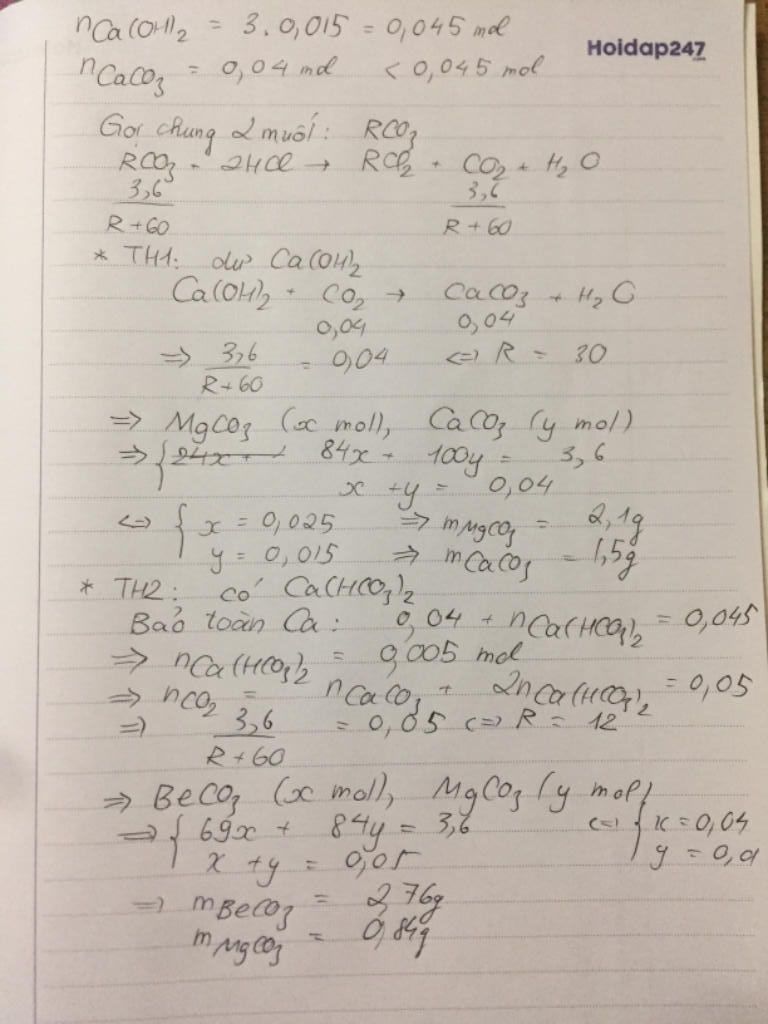 nCa(OH)₂ = 3.0,015 = 0,045 mol
Hoidap247
.com
nCaCO₃ = 0,04 mol < 0,045 mol
Gọi chung 2 muối: RCO₃
RCO₃ + 2HCl → RCl₂ + CO₂ + H₂O
3,6 3,6
R+60 R+60
* TH1: dư Ca(OH)₂
Ca(OH)₂ + CO₂ → CaCO₃ + H₂O
0,04 0,04
=> 3,6 = 0,04 <=> R = 30
R+60
=> MgCO₃ (x mol), CaCO₃ (y mol)
=> { 24x + 84x + 100y = 3,6
x + y = 0,04
<=> { x = 0,025 => mMgCO₃ = 2,1g
y = 0,015 => mCaCO₃ = 1,5g
* TH2: có Ca(HCO₃)₂
Bảo toàn Ca: 0,04 + nCa(HCO₃)₂ = 0,045
=> nCa(HCO₃)₂ = 0,005 mol
=> nCO₂ = nCaCO₃ + 2nCa(HCO₃)₂ = 0,05
=> 3,6 = 0,05 <=> R = 12
R+60
=> BeCO₃ (x mol), MgCO₃ (y mol)
=> { 69x + 84y = 3,6 <=> { x = 0,04
x + y = 0,05 y = 0,01
=> mBeCO₃ = 2,76g
mMgCO₃ = 0,84g